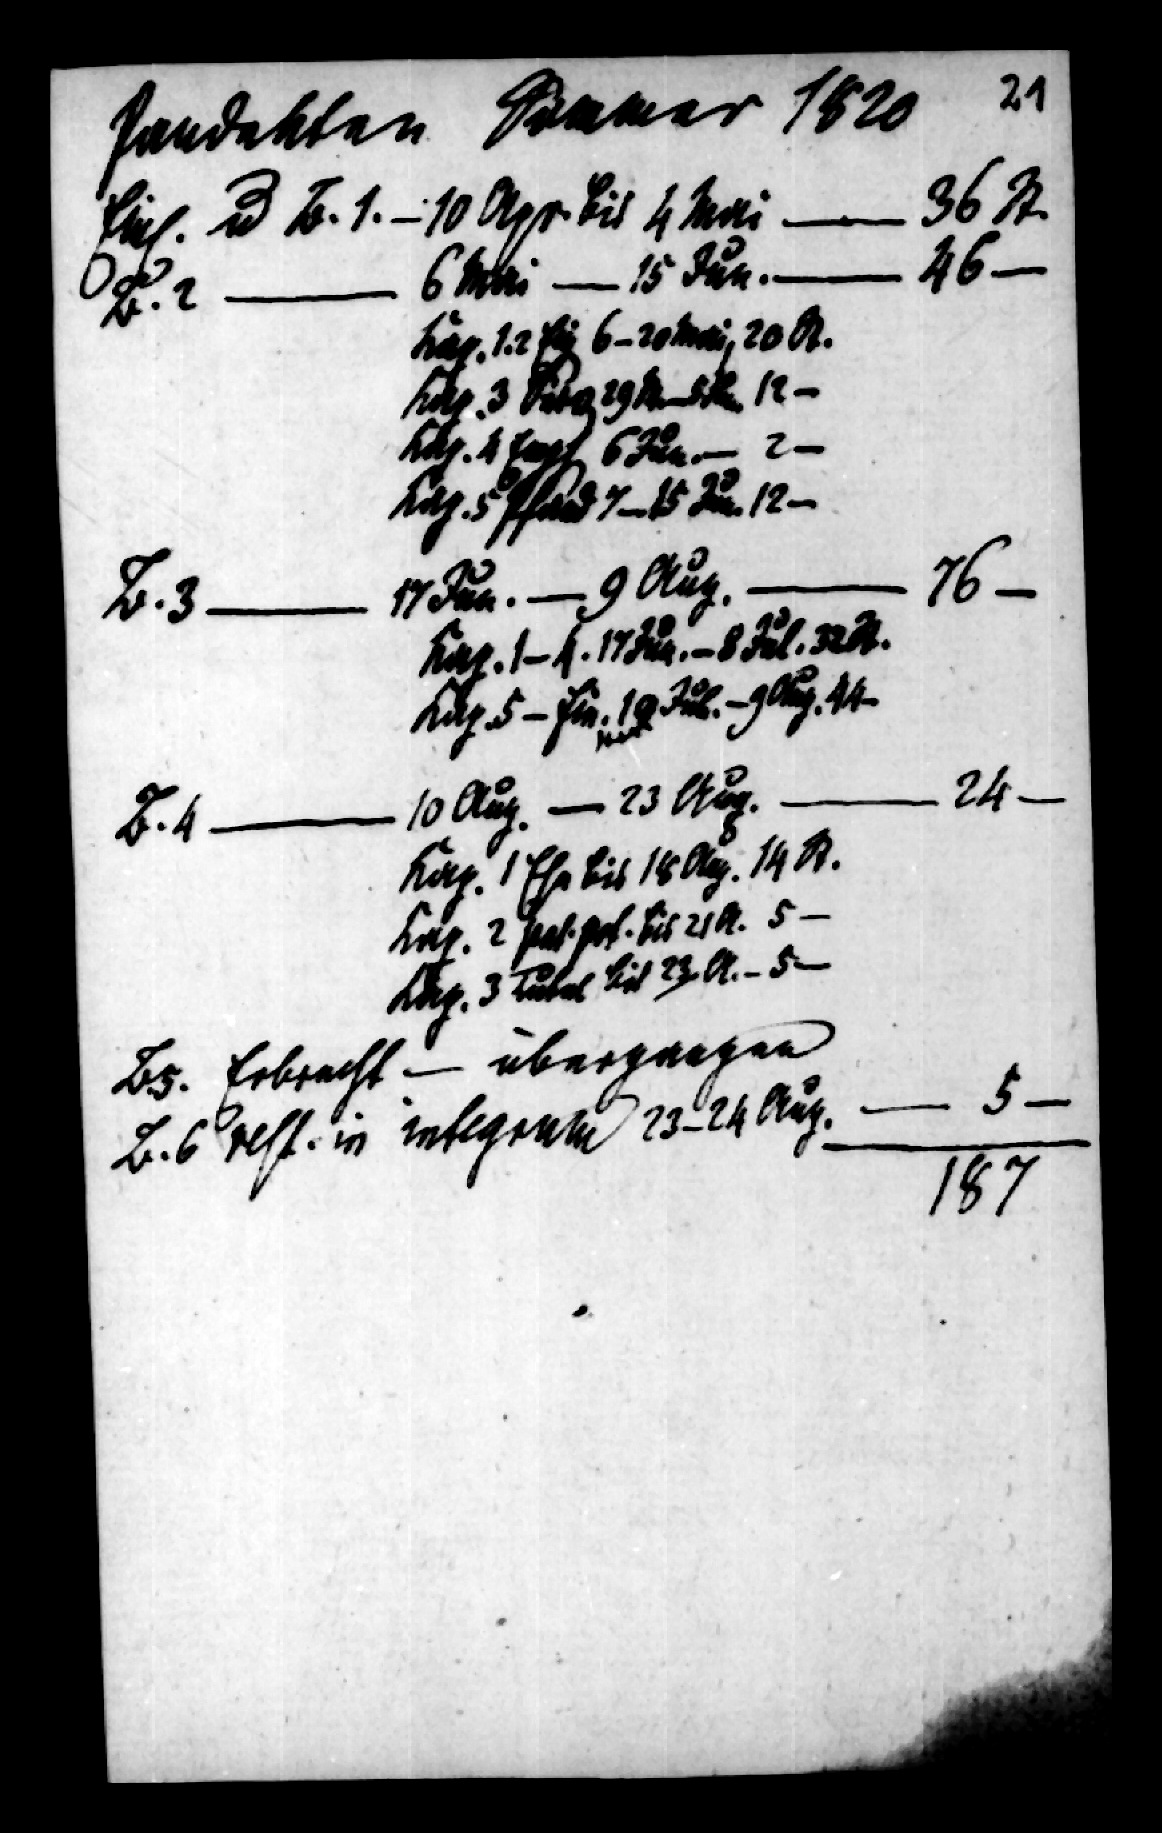 Pandekten Sommer 1820 21
Einl. u B. 1. — 10 Apr. bis 4 Mai — 36 St.
B. 2 — 6 Mai — 15 Jun. — 46 —
Kap. 1.2 6–20 Mai, 20 St.
Kap. 3 Serv. 12 —
Kap. 4 Emph. 6 Jun. — 2 —
Kap. 5 Pfand 7–15 Jun. 12 —
B. 3 — 17 Jun. — 9 Aug. — 76 —
Kap. 1–4. 17 Jun. – 8 Jul. 32 St.
Kap. 5 – fin. 10 Jul. – 9 Aug. 44 –
B. 4 — 10 Aug. — 23 Aug. — 24 —
Kap. 1 Ehe bis 18 Aug. 14 St.
Kap. 2 pat. pot. bis 21 A. 5 —
Kap. 3 Tutel bis 23. A. – 5 —
B. 5. Erbrecht — übergangen
B. 6 rest. in integrum 23–24 Aug. — 5 —
187